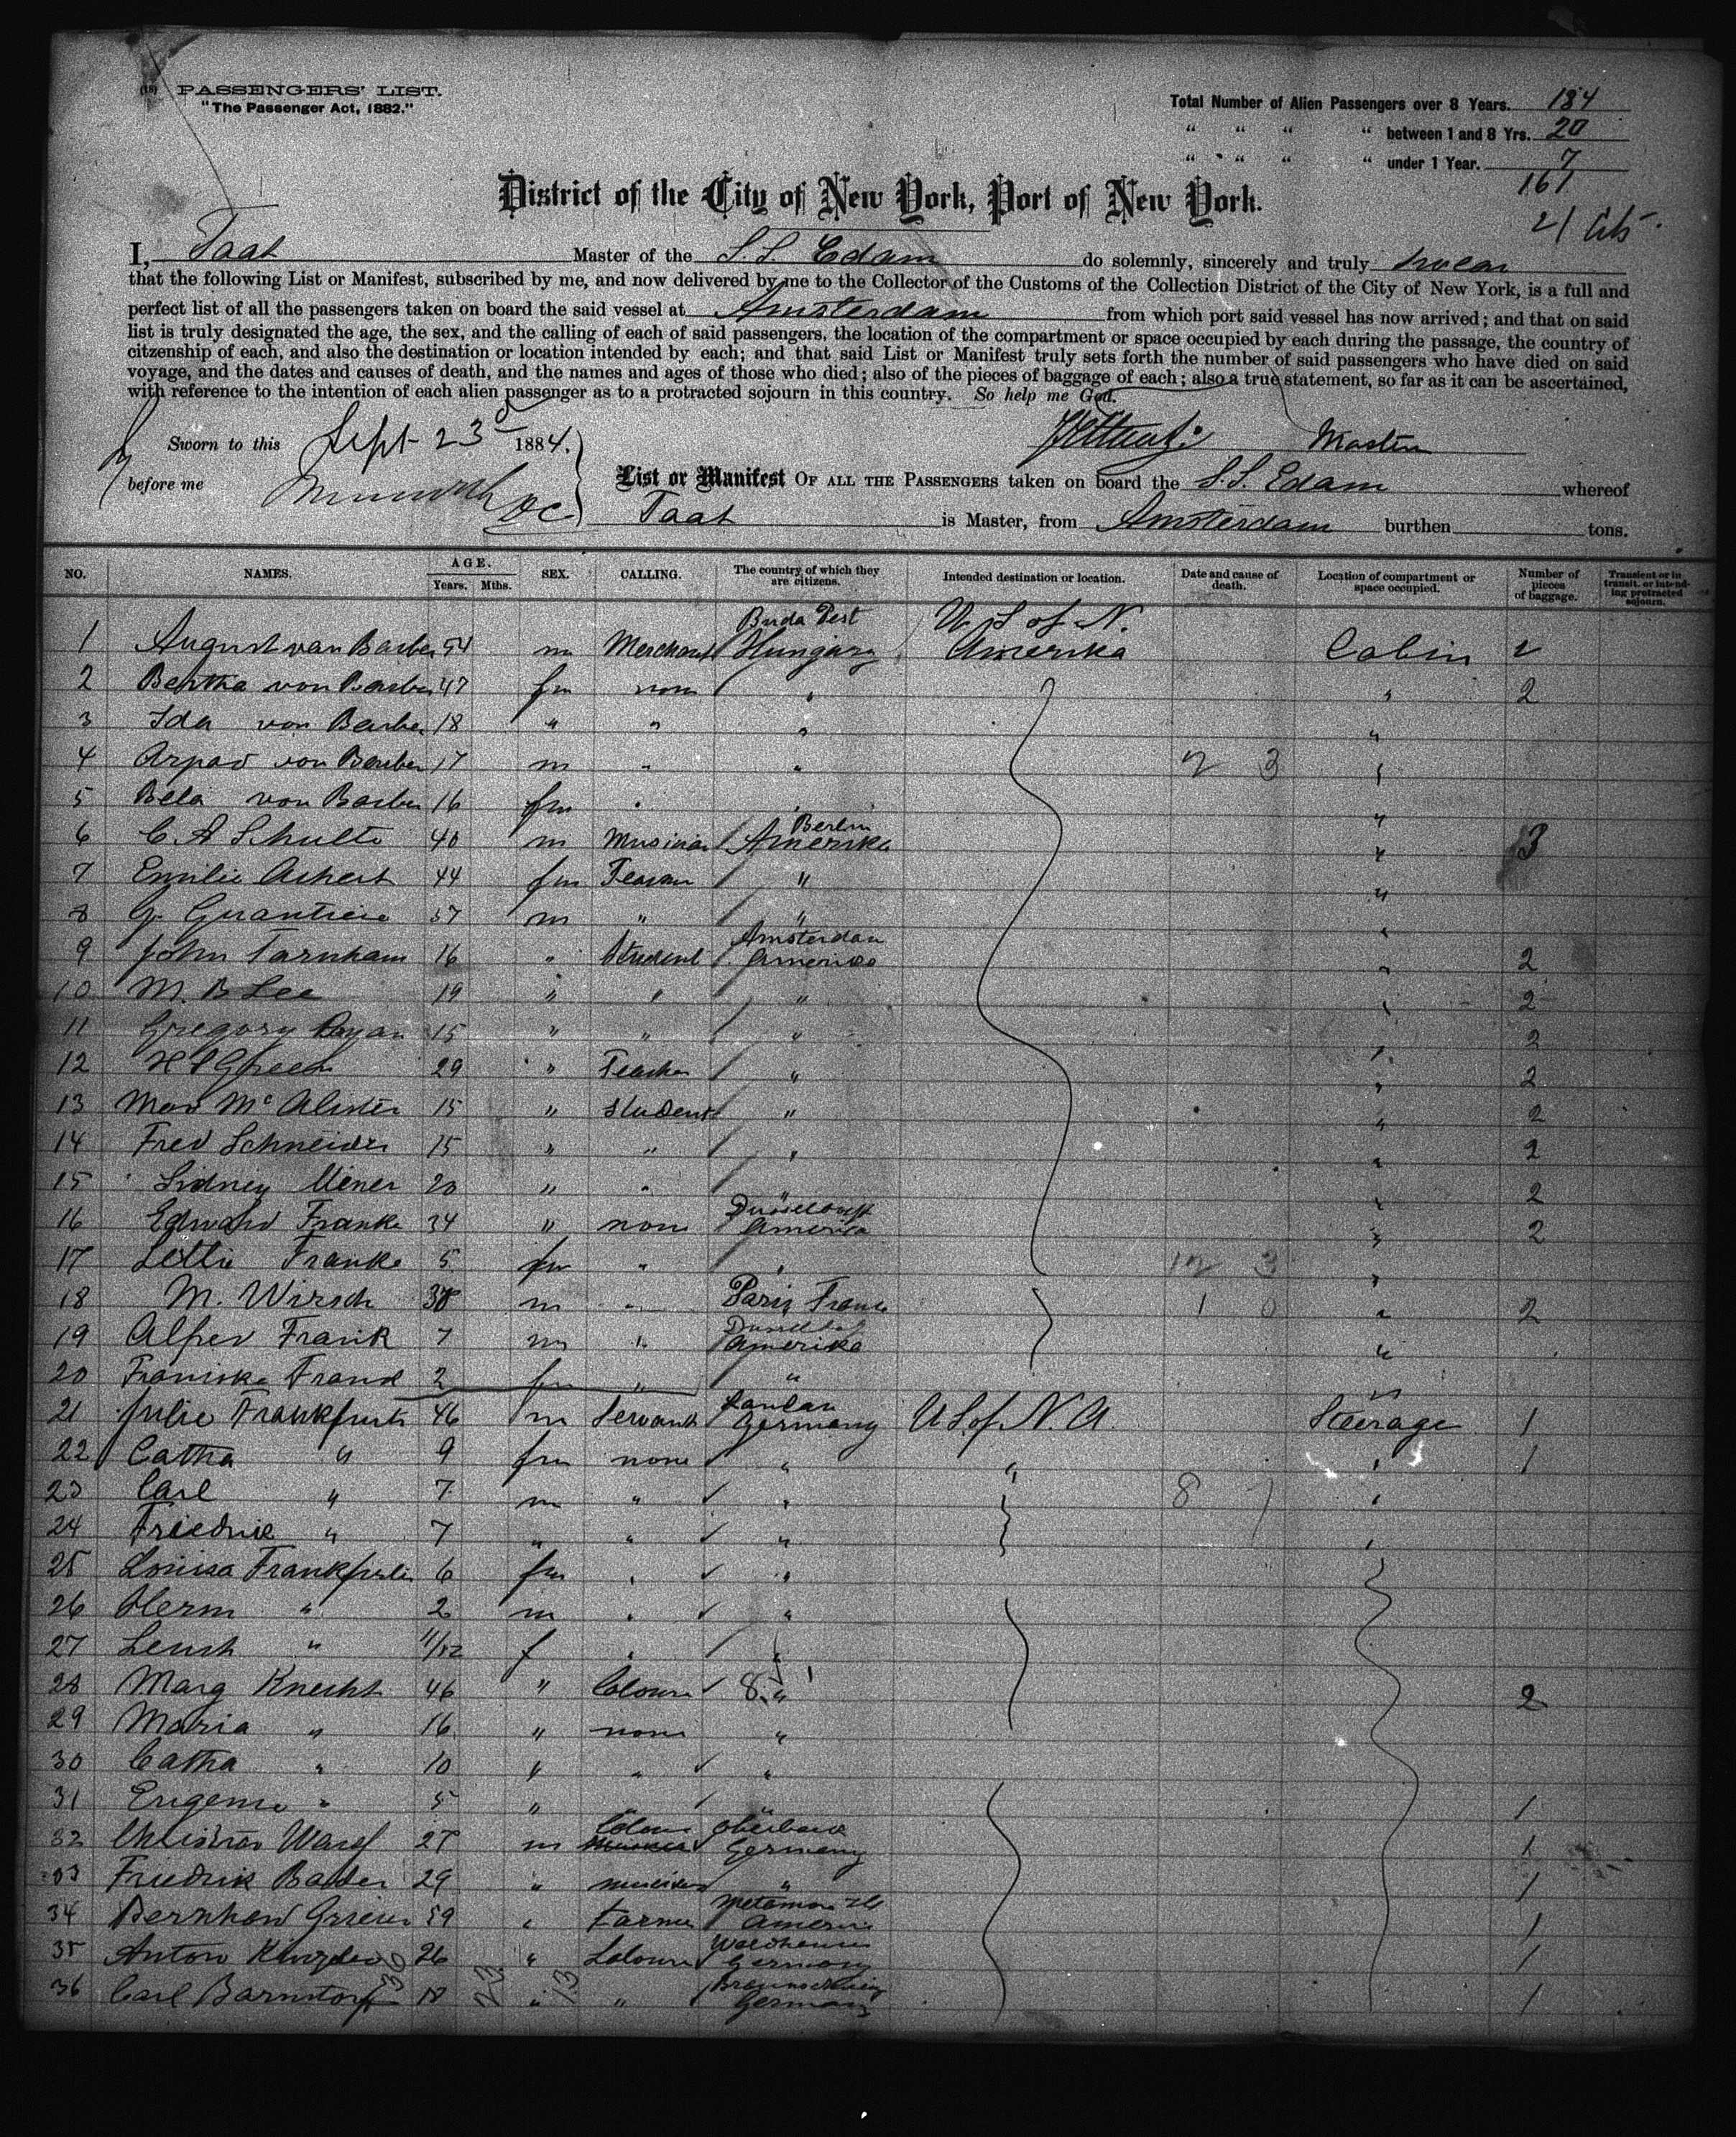 (18) PASSENGERS' LIST.
"The Passenger Act, 1882."
Total Number of Alien Passengers over 8 Years. 184
" " " " between 1 and 8 Yrs. 20
" " " " under 1 Year. 7
161
21 Cits
District of the City of New York, Port of New York.
I, Taat Master of the S.S. Edam do solemnly, sincerely and truly swear
that the following List or Manifest, subscribed by me, and now delivered by me to the Collector of the Customs of the Collection District of the City of New York, is a full and
perfect list of all the passengers taken on board the said vessel at Amsterdam from which port said vessel has now arrived; and that on said
list is truly designated the age, the sex, and the calling of each of said passengers, the location of the compartment or space occupied by each during the passage, the country of
citzenship of each, and also the destination or location intended by each; and that said List or Manifest truly sets forth the number of said passengers who have died on said
voyage, and the dates and causes of death, and the names and ages of those who died; also of the pieces of baggage of each; also a true statement, so far as it can be ascertained,
with reference to the intention of each alien passenger as to a protracted sojourn in this country. So help me God.
Sworn to this Sept 23d 1884. Master
before me
List or Manifest OF ALL THE PASSENGERS taken on board the S.S. Edam whereof
Taat is Master, from Amsterdam burthen tons.
NO. NAMES. AGE. Years. Mths. SEX. CALLING. The country of which they are citizens. Intended destination or location. Date and cause of death. Location of compartment or space occupied. Number of pieces of baggage. Transient or in transit, or intending protracted sojourn.
Buda Pest U S of N.
1 August van Barber 54 m Merchant Hungary Amerika Cabin 2
2 Bertha von Barber 47 fm none " " 2
3 Ida von Barber 18 " " " "
4 Arpad von Barber 17 m " " 2 3 "
5 Bela von Barber 16 fm " " "
Berlin
6 C A Schulte 40 m Musician Amerika " 3
7 Emilie Ashert 44 fm " "
8 G. 37 m " " "
Amsterdam
9 John Farnham 16 " Student Amerika " 2
10 M. B Lee 19 " " " " 2
11 Gregory 15 " " " " 2
12 Green 29 " Teacher " " 2
13 Mc Alister 15 " student " " 2
14 Fred Schneider 15 " " " " 2
15 Sidney Miner 20 " " " " 2
Dusseldorf
16 Edward Franke 34 " none America " 2
17 Lettie Franke 5 fm " " 12 3 "
18 M. Wirsch 38 m " Paris France 1 0 " 2
Dusseldorf
19 Alfred Frank 7 m " Amerika "
20 Franiska Frank 2 fm " " "
21 Julie Frankfurter 46 m Servant Germany U S of N. A. Steerage 1
22 Catha " 9 fm none " " " 1
23 Carl " 7 m " " 8 "
24 Friedrik " 7 " " " "
25 Louisa Frankfurter 6 fm " "
26 Herm " 2 m " "
27 " 11/12 f " "
28 Marg Knecht 46 " 8 " 2
29 Maria " 16 " none "
30 Catha " 10 " " "
31 Eugenie " 5 " " 1
32 Christian 27 m Germany 1
33 Friedrik Bader 29 " musician " 1
Metamora Ills
34 Bernhard 59 " Farmer America 1
35 Anton 26 " Germany 1
Braunschweig
36 Carl Barnstorf 18 " " Germany 1
30 23 13